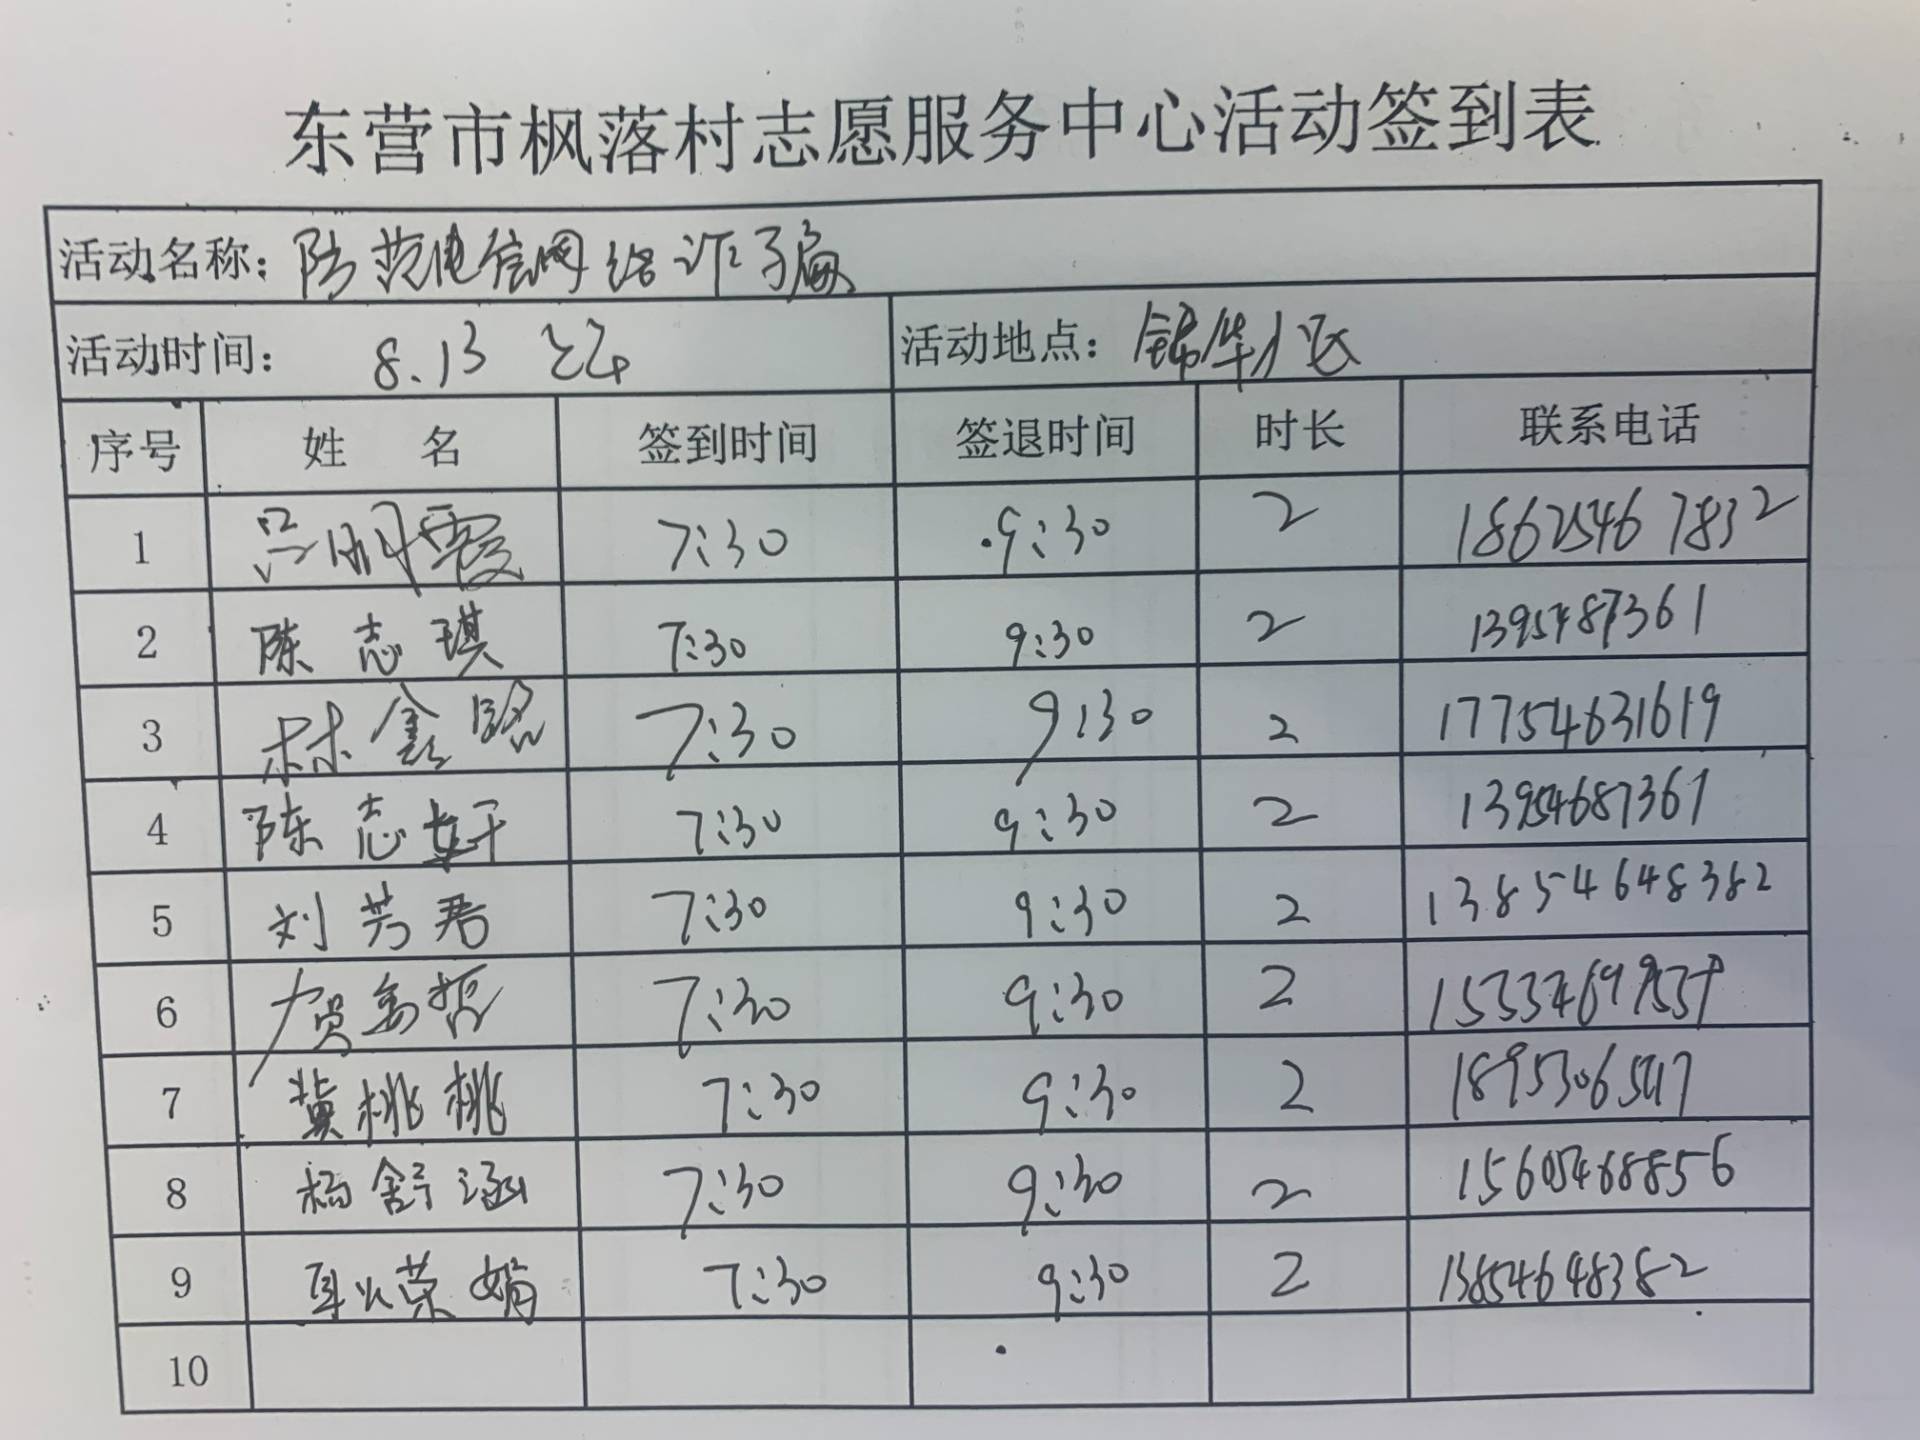 东营市枫落村志愿服务中心活动签到表
活动名称：防范电信网络诈骗
活动时间： 8.13 活动地点：锦华小区
序号 姓 名 签到时间 签退时间 时长 联系电话
1 吕明霞 7:30 9:30 2 18625467832
2 陈志琪 7:30 9:30 2 1395487361
3 林鑫铭 7:30 9:30 2 17754631619
4 陈志轩 7:30 9:30 2 13954687361
5 刘芳君 7:30 9:30 2 13854648382
6 7:30 9:30 2
7 冀桃桃 7:30 9:30 2
8 杨舒涵 7:30 9:30 2 15605468856
9 耿荣娟 7:30 9:30 2 13854648382
10